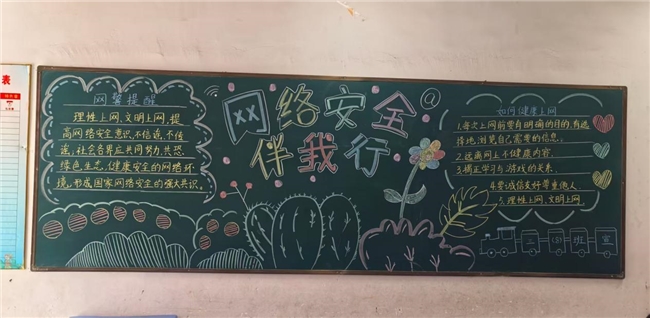 表
网警提醒
理性上网,文明上网,提
高网络安全意识,不信谣,不传
谣,社会各界应共同努力,共恐
绿色生态,健康安全的网络环
境,形成国家网络安全的强大共识。
网络安全
伴我行
@
如何健康上网
1.每次上网前要有明确的目的,有选
择地浏览自己需要的信息。
2.远离网上不健康内容。
3.搞正学习与游戏的关系
4.要诚信友好尊重他人
5.理性上网,文明上网
班 宣